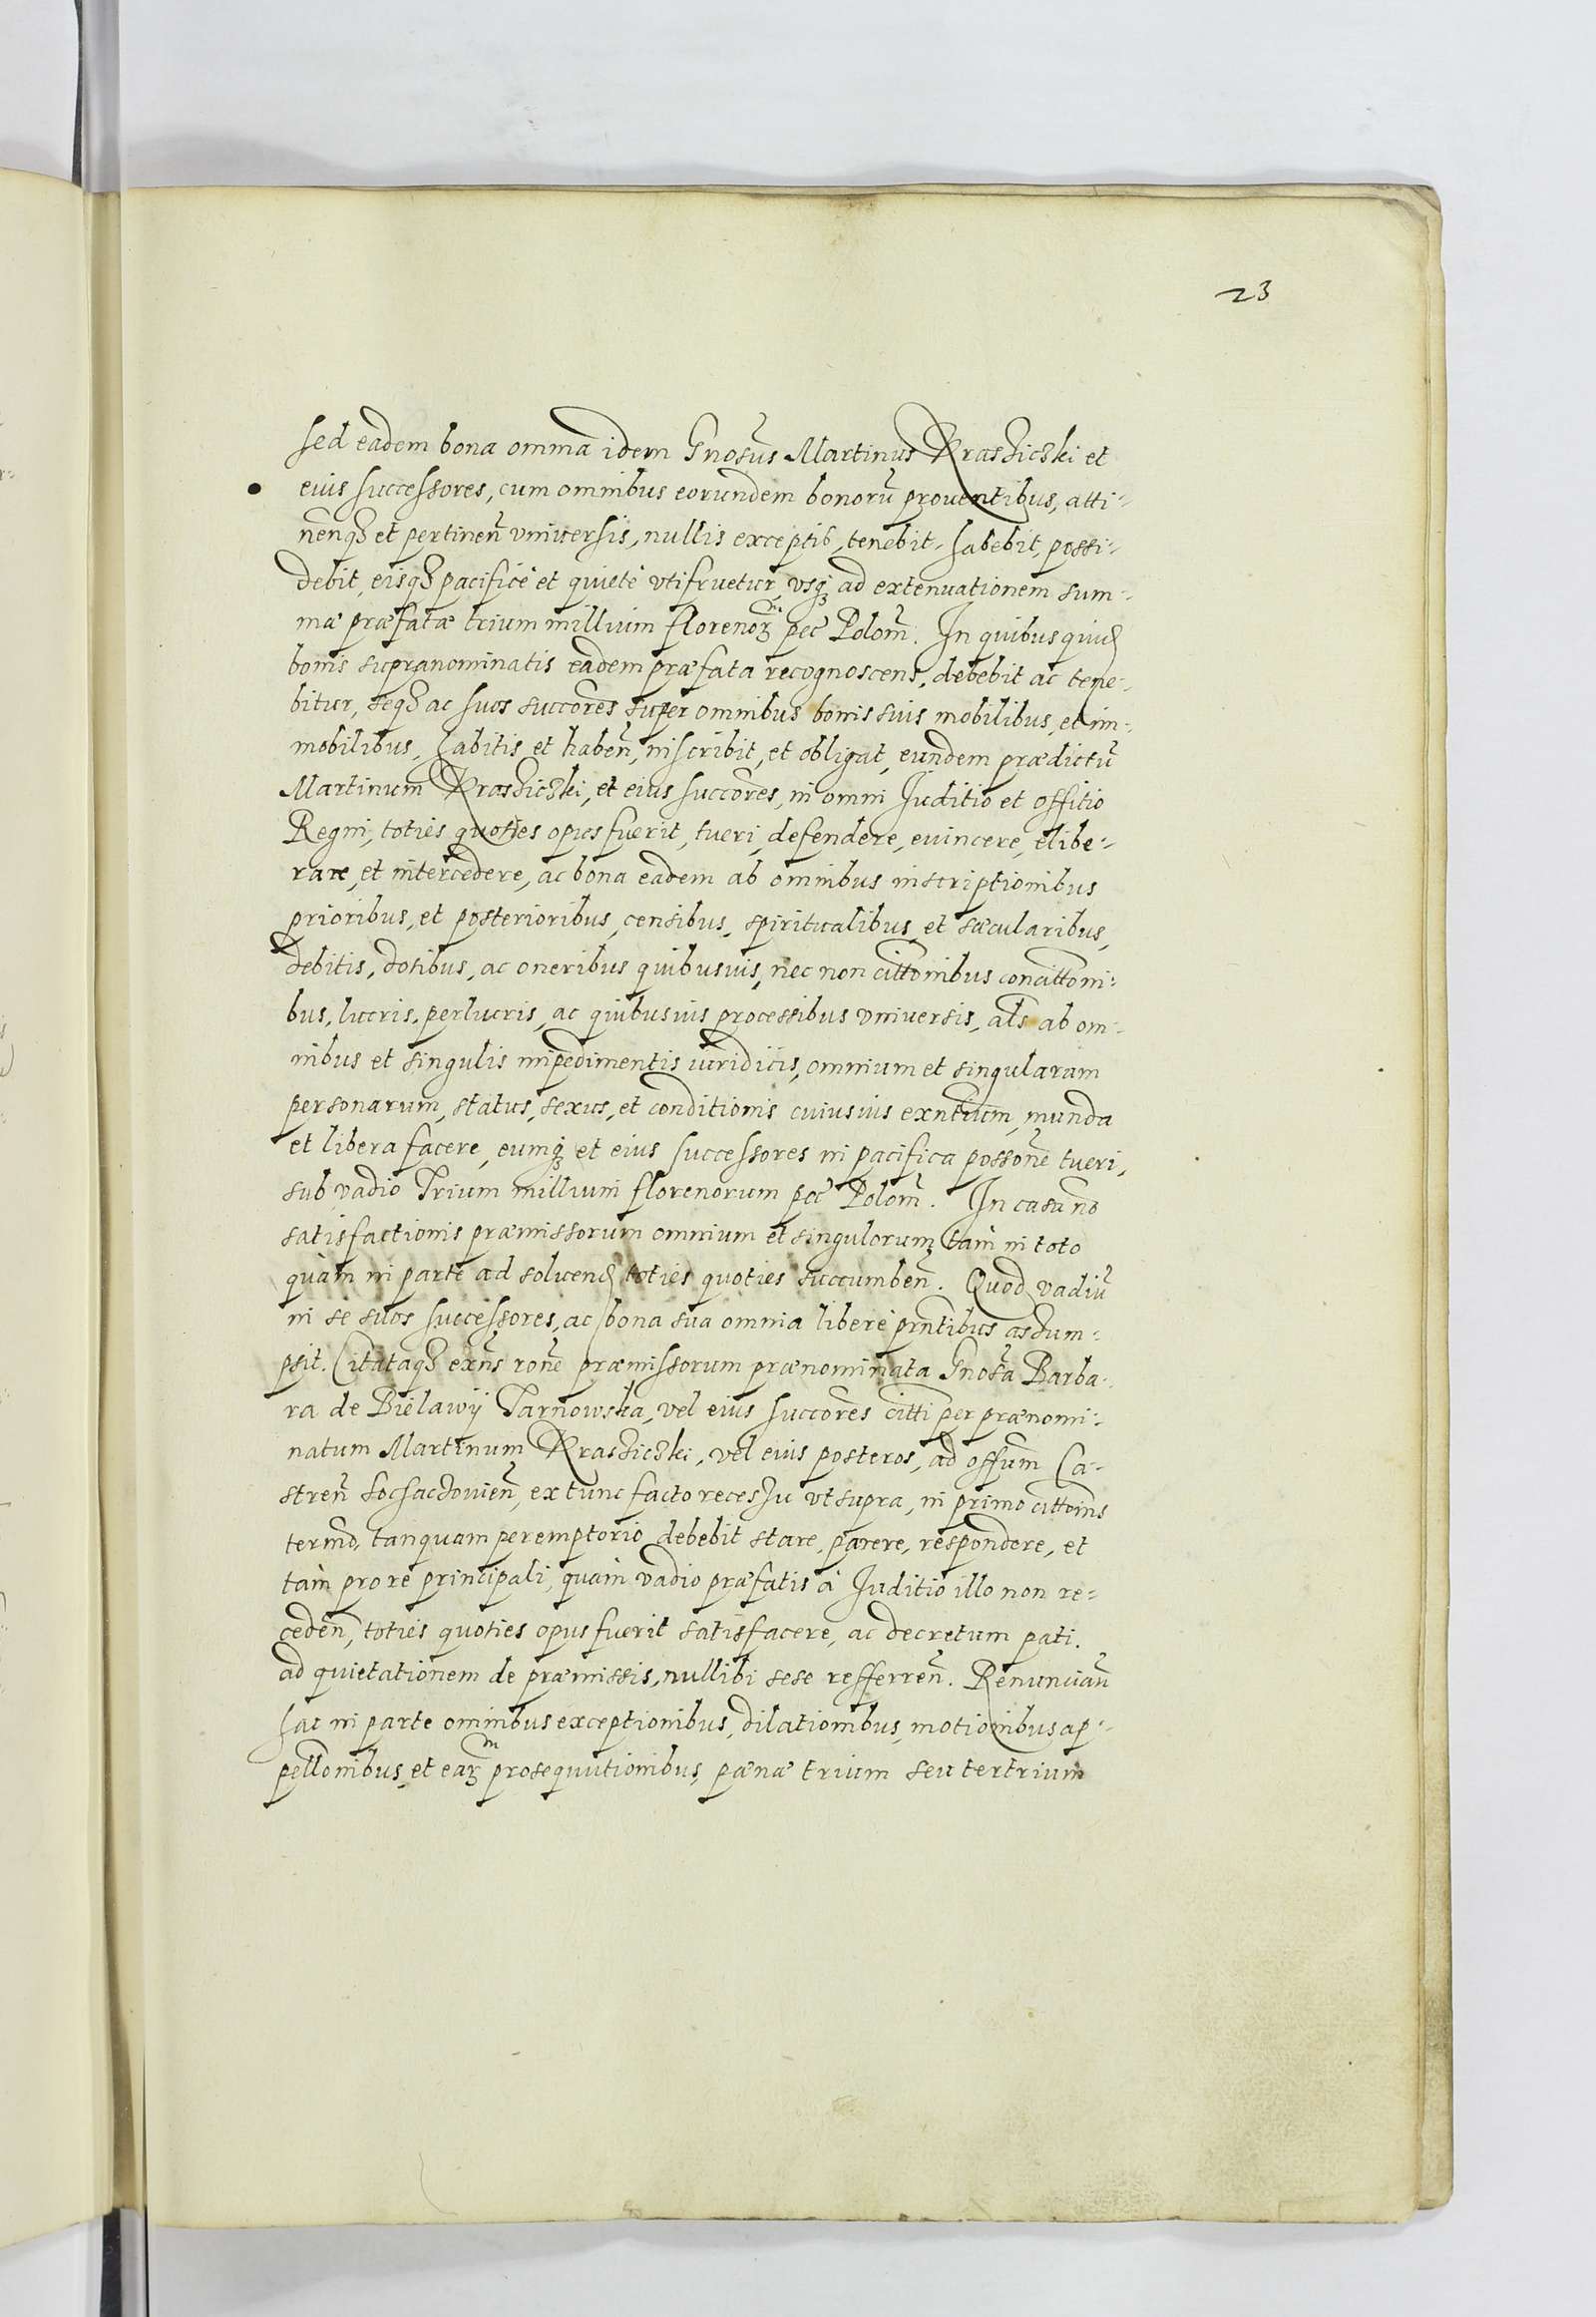 23
sed eadem bona omnia idem Gnosus Martinus Krassicski et
eius successores, cum omnibus eorundem bonorū prouentibus, atti-
nenq3 et pertinen̄ vniuersis, nullis exceptis, tenebit, habebit, possi-
debit, eisq3 pacificè et quietè vtifruetur, vsq3 ad extenuationem sum-
mæ præfatæ trium millium florenor3 pec̄ Polon̄. In quibus quid
bonis supranominatis eadem præfata recognoscens, debebit ac tene-
bitur, seq3 ac suos succores super omnibus bonis suis mobilibus, et im-
mobilibus, habitis et haben̄, inscribit, et obligat, eundem prædictū
Martinum Krassicski, et eius succores, in omni Iuditio et offitio
Regni, toties quoties opus fuerit, tueri, defendere, euincere, elibe-
rare, et intercedere, ac bona eadem ab omnibus inscriptionibus
prioribus, et posterioribus, censibus, spiritualibus, et sæcularibus,
debitis, dotibus, ac oneribus quibusuis, nec non cittōnibus concittōni-
bus, lucris, perlucris, ac quibusuis processibus vniuersis, als ab om-
nibus et singulis impedimentis iuridicis, omnium et singularum
personarum, status, sexus, et conditionis cuiusuis exn̄tium, munda
et libera facere, eumq3 et eius successores in pacifica possonē tueri,
sub vadio Trium millium florenorum pec̄ Polon̄. In casu no
satisfactionis præmissorum omnium et singulorum, tàm in toto
quàm in parte ad soluend toties quoties succumben̄. Quod vadiū
in se suos successores, ac bona sua omnia liberè prn̄tibus assum-
psit. Citataq3 exn̄s ronē præmissorum prænominata Gnosa Barba-
ra de Bielawÿ Tarnowska, vel eius succores citti per prænomi-
natum Martinum Krassicski, vel eius posteros, ad offum Ca-
stren̄ Sochaczouien̄, ex tunc facto recessu vt supra, in primo cittōnis
termō, tanquam peremptorio debebit stare, parere, respondere, et
tàm pro re principali, quàm vadio præfatis à Iuditio illo non re-
ceden̄, toties quoties opus fuerit satisfacere, ac decretum pati.
ad quietationem de præmissis, nullibi sese refferren̄. Renuncian̄
hac in parte omnibus exceptionibus, dilationibus, motionibus ap-
pellōnibus, et ear3 prosequutionibus, pænæ trium seu tertrium